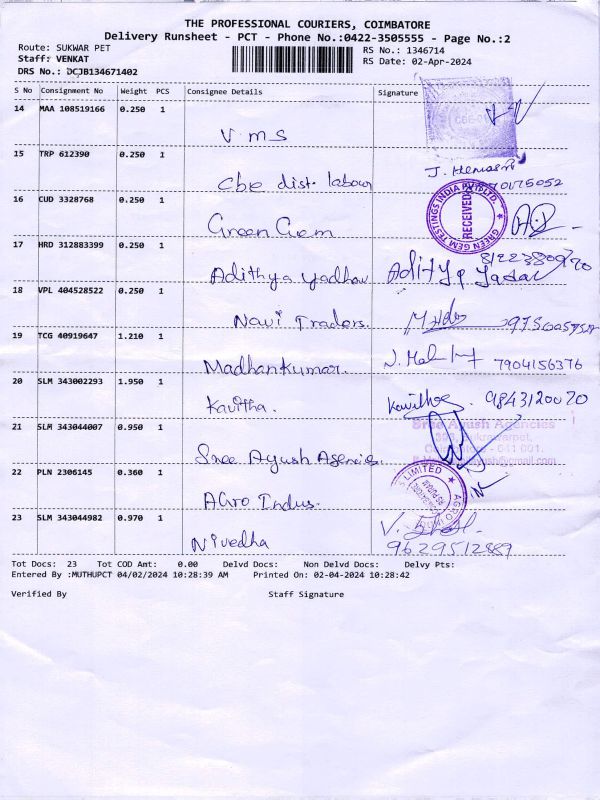 THE PROFESSIONAL COURIERS, COIMBATORE
Delivery Runsheet - PCT - Phone No.:0422-3505555 - Page No.:2
Route: SUKWAR PET
RS No.: 1346714
Staff: VENKAT
RS Date: 02-Apr-2024
DRS No.: DCJB134671402
S No Consignment No Weight PCS Consignee Details Signature
14 MAA 108519166 0.250 1
V.m.s
15 TRP 612390 0.250 1
Cbe dist. labour
16 CUD 3328768 0.250 1
Green Gem
GREEN GEM TESTINGS INDIA PVT LTD RECEIVED
17 HRD 312883399 0.250 1
Adithya yadhav
18 VPL 404528522 0.250 1
Navi Traders.
19 TCG 40919647 1.210 1
Madhankumar. 7904156376
20 SLM 343002293 1.950 1
Kavitha. 9843120070
21 SLM 343044007 0.950 1
Sree Ayush Agencies
Sree Ayush Agencies
22 PLN 2306145 0.360 1
Agro Indus.
23 SLM 343044982 0.970 1
Nivedha
9629512889
Tot Docs: 23 Tot COD Amt: 0.00 Delvd Docs: Non Delvd Docs: Delvy Pts:
Entered By :MUTHUPCT 04/02/2024 10:28:39 AM Printed On: 02-04-2024 10:28:42
Verified By Staff Signature